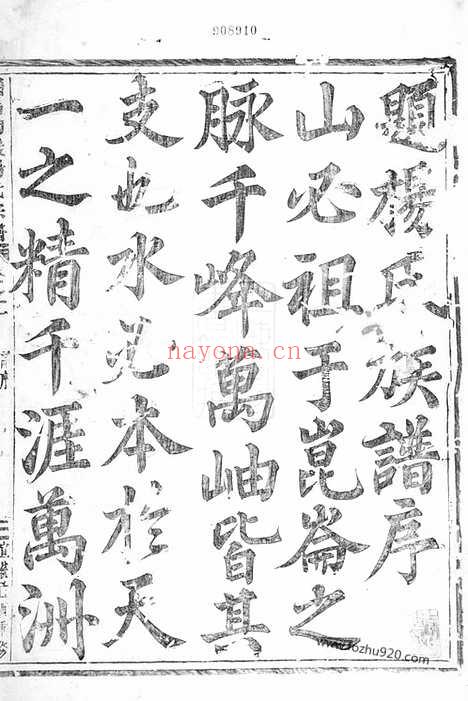 908910
題楊氏族譜序
山必祖于崑崙之
脉千峰萬岫皆其
支也水本於天
一之精千涯萬洲
nayona.cn
www.fozhu920.com